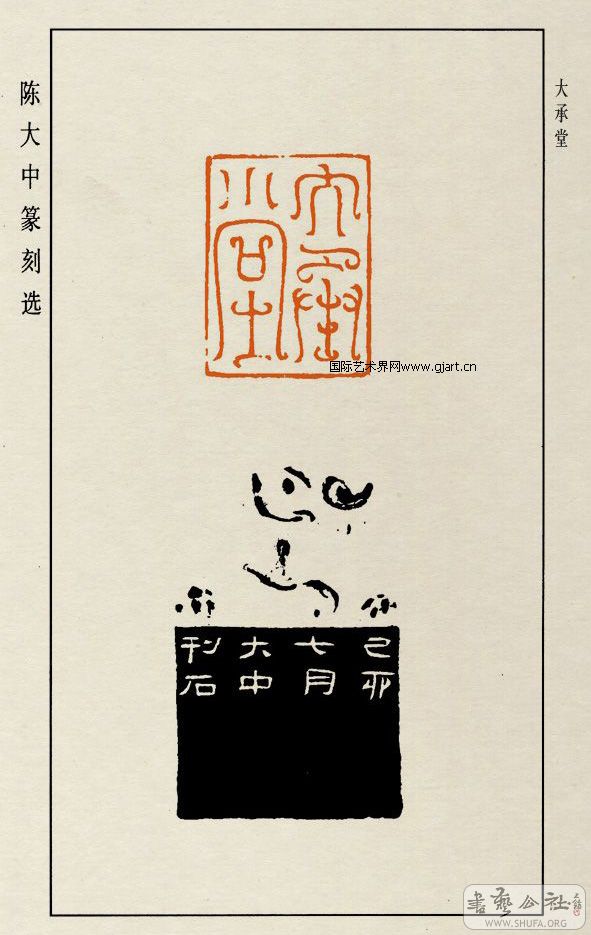 大承堂
大承堂
国际艺术界网www.gjart.cn
己亥
七月
大中
刊石
陈大中篆刻选
書藝公社
WWW.SHUFA.ORG